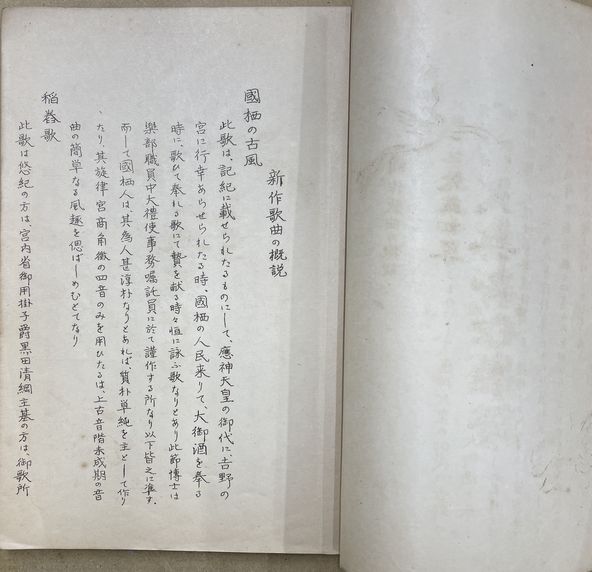 新作歌曲の概説
國栖の古風
此歌は、記紀に載せられたるものにして、應神天皇の御代に、吉野の
宮に行幸あらせられたる時、國栖の人民来りて、大御酒を奉る
時に、歌ひて奉れる歌にて贄を献る時々恒に詠ふ歌なりとあり此節博士は
樂部職員中大禮使事務囑託員に於て謹作する所なり以下皆之に準ず、
而して國栖人は、其為人甚淳朴なりとあれば、質朴単純を主として作り
たり、其旋律宮商角徴の四音のみを用ひたるは、上古音階未成期の音
曲の簡単なる風趣を偲ばしめむとてなり
稲舂歌
此歌は悠紀の方は、宮内省御用掛子爵黒田清綱主基の方は、御歌所